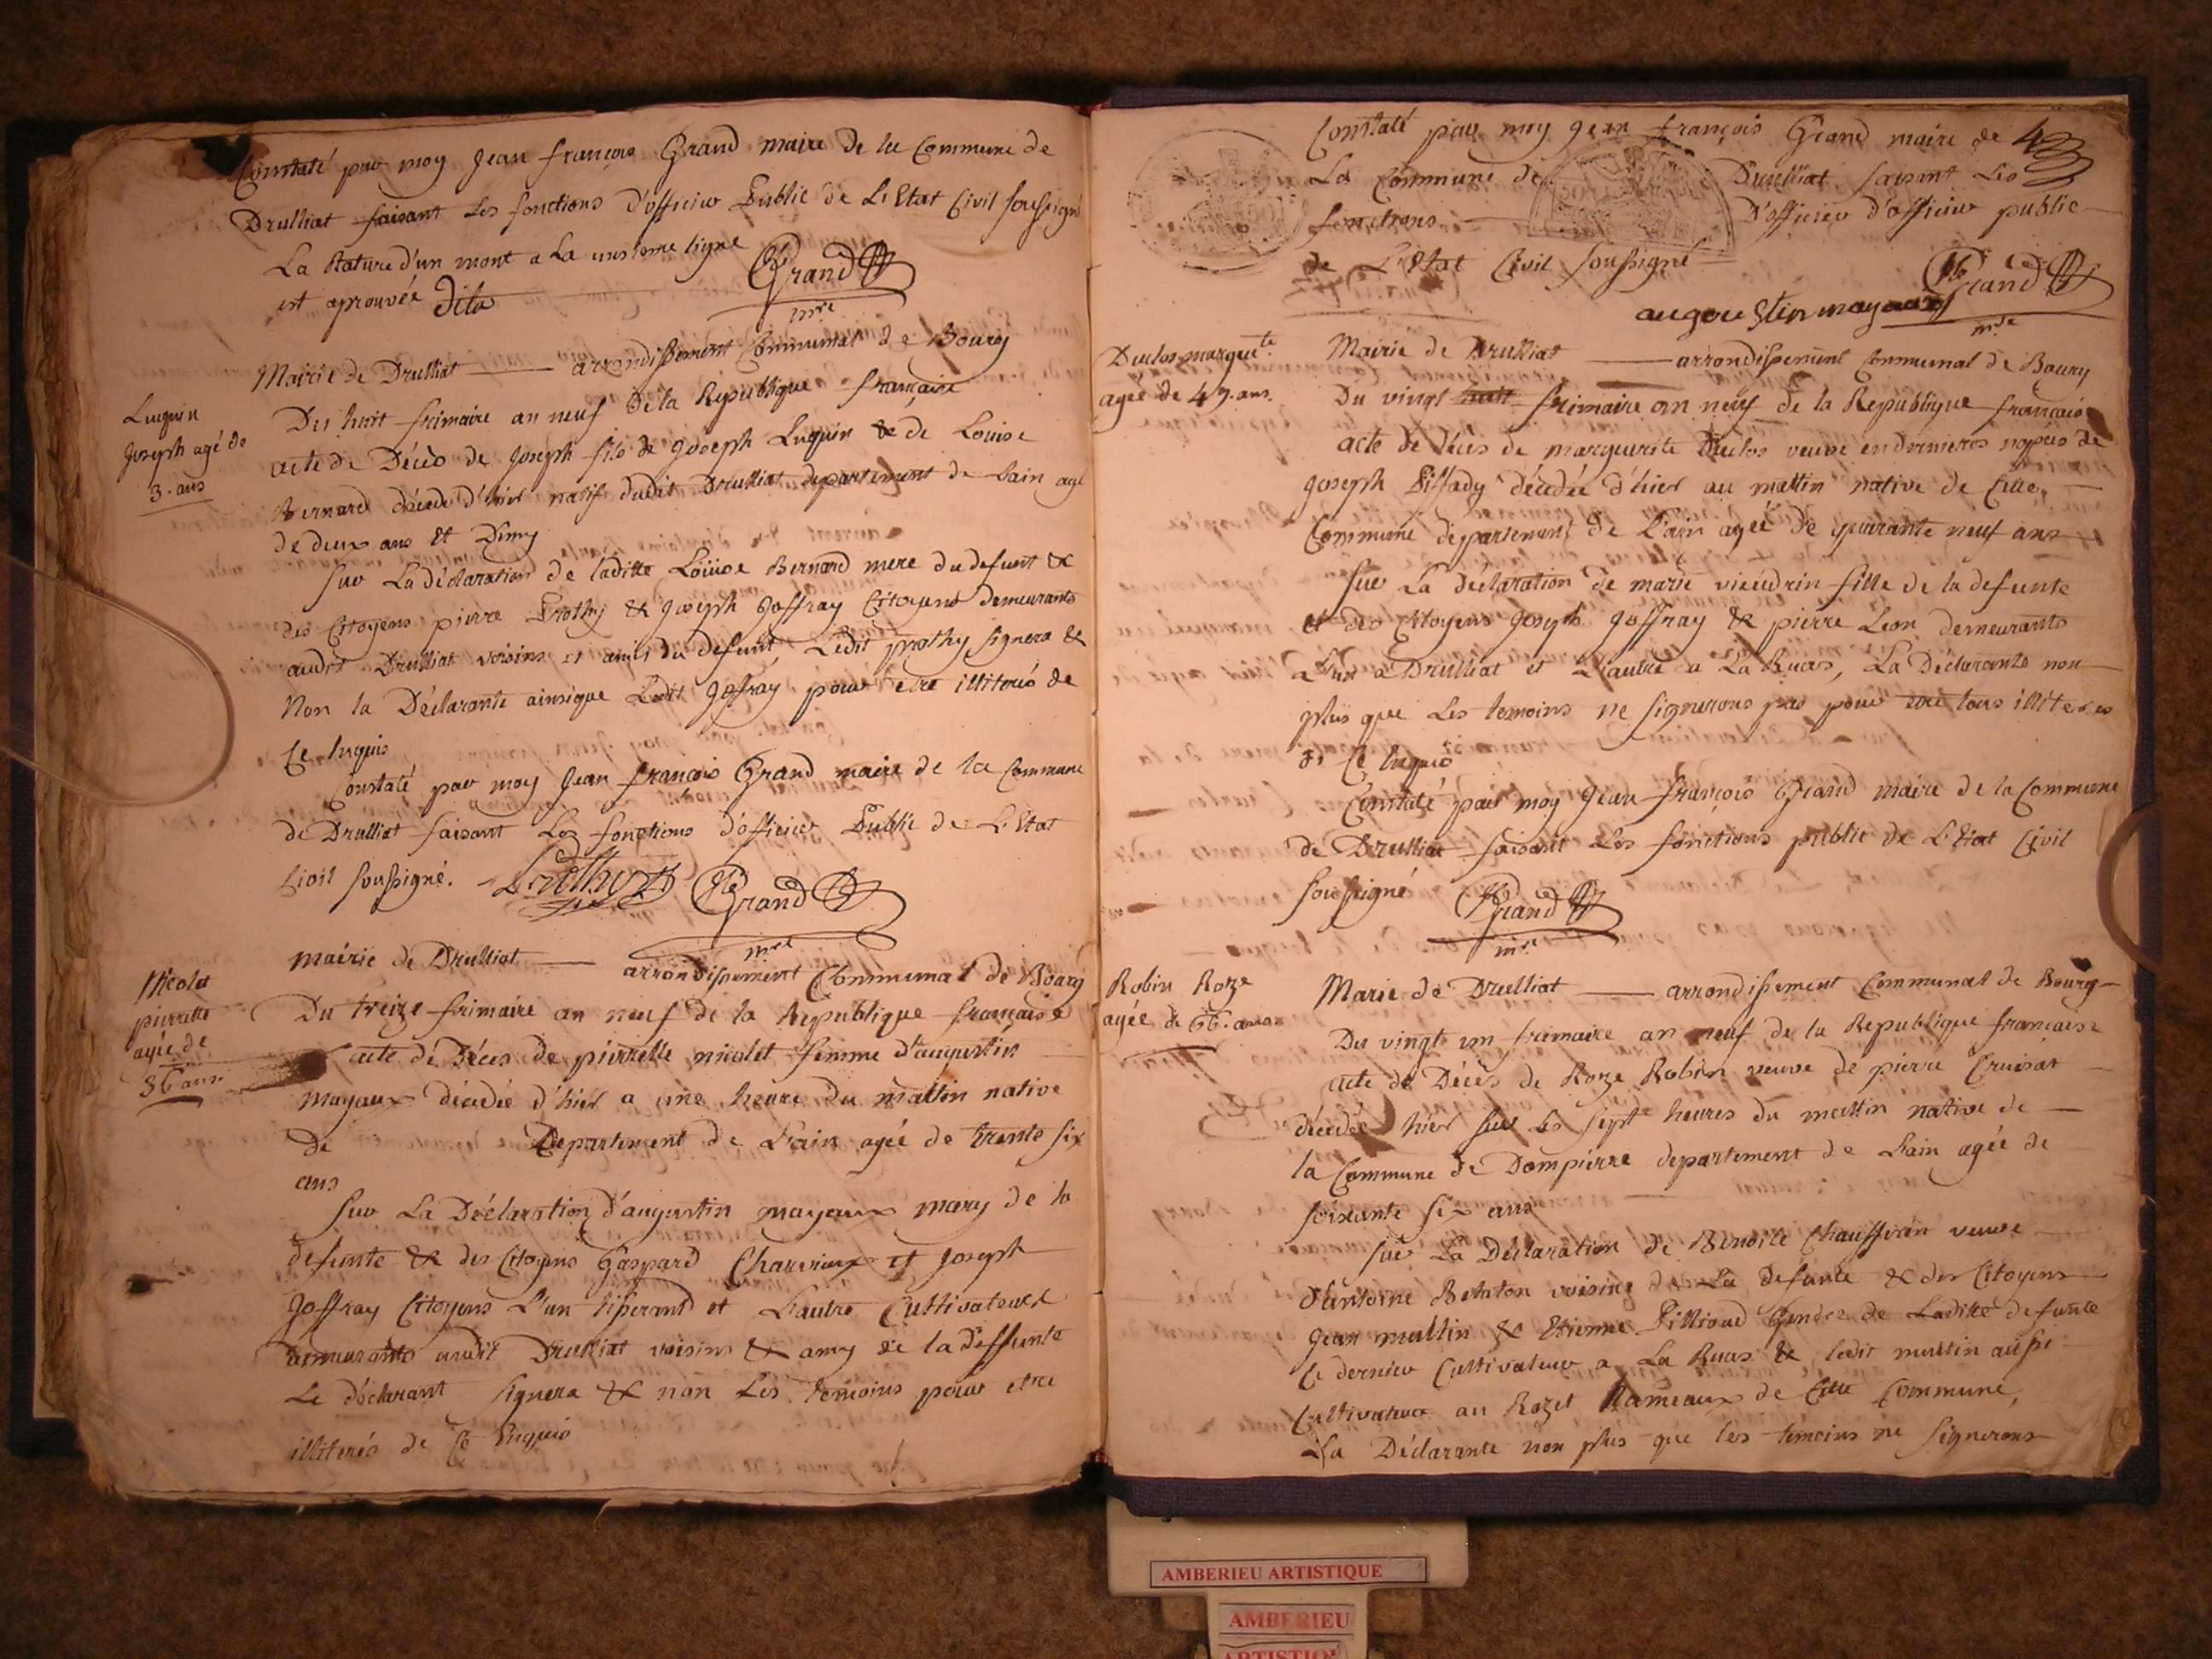 Constaté par moy Jean françois Grand maire de la Commune de
Drulliat faisant Les fonctions d'officier Public de L'Etat Civil soussigné
La Rature d'un mont a La unsieme ligne
est aprouvée dila
Grand
mre
Mairie de Drulliat arrondissement Communal de Bourg
Luquin
Joseph agé de
3. ans
Du huit frimaire an neuf de la Republique française
acte de Décès de Joseph fils de Joseph Luquin & de Louise
Bernard décédé d'hier natif dudit Drulliat departement de Lain agé
de deux ans et Demy
Sur La déclaration de laditte Louise Bernard mere du defunt &
des Citoyens pierre Prothy & Joseph Joffray Citoyens demeurants
audit Drulliat voisins et amis du defunt, Ledit prothy signera &
Non la Déclarante ainsique Ledit Joffray pour etre illiterés de
Ce Inquis
Constaté par moy Jean françois Grand maire de la Commune
de Drulliat faisant Les fonctions d'officier Public de L'Etat
Civil soussigné. Prothy Grand
mre
mairie de Drulliat arrondissement Communal de Bourg
Nicolet
pierrette
agée de
36 ans
Du treize frimaire an neuf de la Republique française
acte de Décès de pierrette nicolet femme d'augustin
mayaux décédée d'hier a une heure du mattin native
de Departement de Lain agée de trente six
ans
Sur La Déclaration d'augustin mayaux mary de la
defunte & des Citoyens Gaspard Charvieux et Joseph
Joffray Citoyens L'un tisserand et L'autre Cultivateur
demeurants audit Drulliat voisins & amy de la deffunte
Le déclarant signera & non Les temoins pour etre
illiterés de Ce Inquis
Constaté par moy Jean françois Grand maire de 4
La Commune de Drulliat faisant Les
fonctions D'officier d'officier public
de L'Etat Civil soussigné
Grand
augoustin mayaux
mre
Duclos marguete
agée de 49. ans
Mairie de Drulliat arrondissement Communal de Bourg
Du vingt huit frimaire an neuf de la Republique française
acte de Décès de marguerite Duclos veuve en dernieres nopces de
Joseph Piffady décédée d'hier au mattin native de Cette
Commune departement de L'ain agée de quarante neuf ans
Sur La déclaration de marie vieudrin fille de la defunte
et des Citoyens Joseph Joffray & pierre Leon demeurants
L'un a Drulliat et L'autre a La Ruas, La Déclarante non
plus que Les temoins ne signerons pas pour etre tous illiteres
de Ce Inquis
Constaté par moy Jean françois Grand maire de la Commune
de Drulliat faisant Les fonctions public de L'Etat Civil
soussigné Grand
mre
Robin Roze
agée de 66. ans
Marie de Drulliat arrondissement Communal de Bourg
Du vingt un frimaire an neuf de la Republique francaise
acte de Décès de Roze Robin veuve de pierre Cruisat
décédée hier sur Les sept heures du mattin native de
la Commune de Dompierre departement de Lain agée de
soixante six ans
Sur La Déclaration de Benoite Chauffrin veuve
d'antoine Belaton voisine de La defunte & des Citoyens
Jean multin & Etienne Pillioud Gendre de Laditte defunte
Ce dernier Cultivateur a La Ruas & ledit multin aussi
Cultivateur au Rozet Hameaux de Cette Commune,
La Déclarante non plus que les temoins ne signerons
AMBERIEU ARTISTIQUE
AMBERIEU
ARTISTIQUE